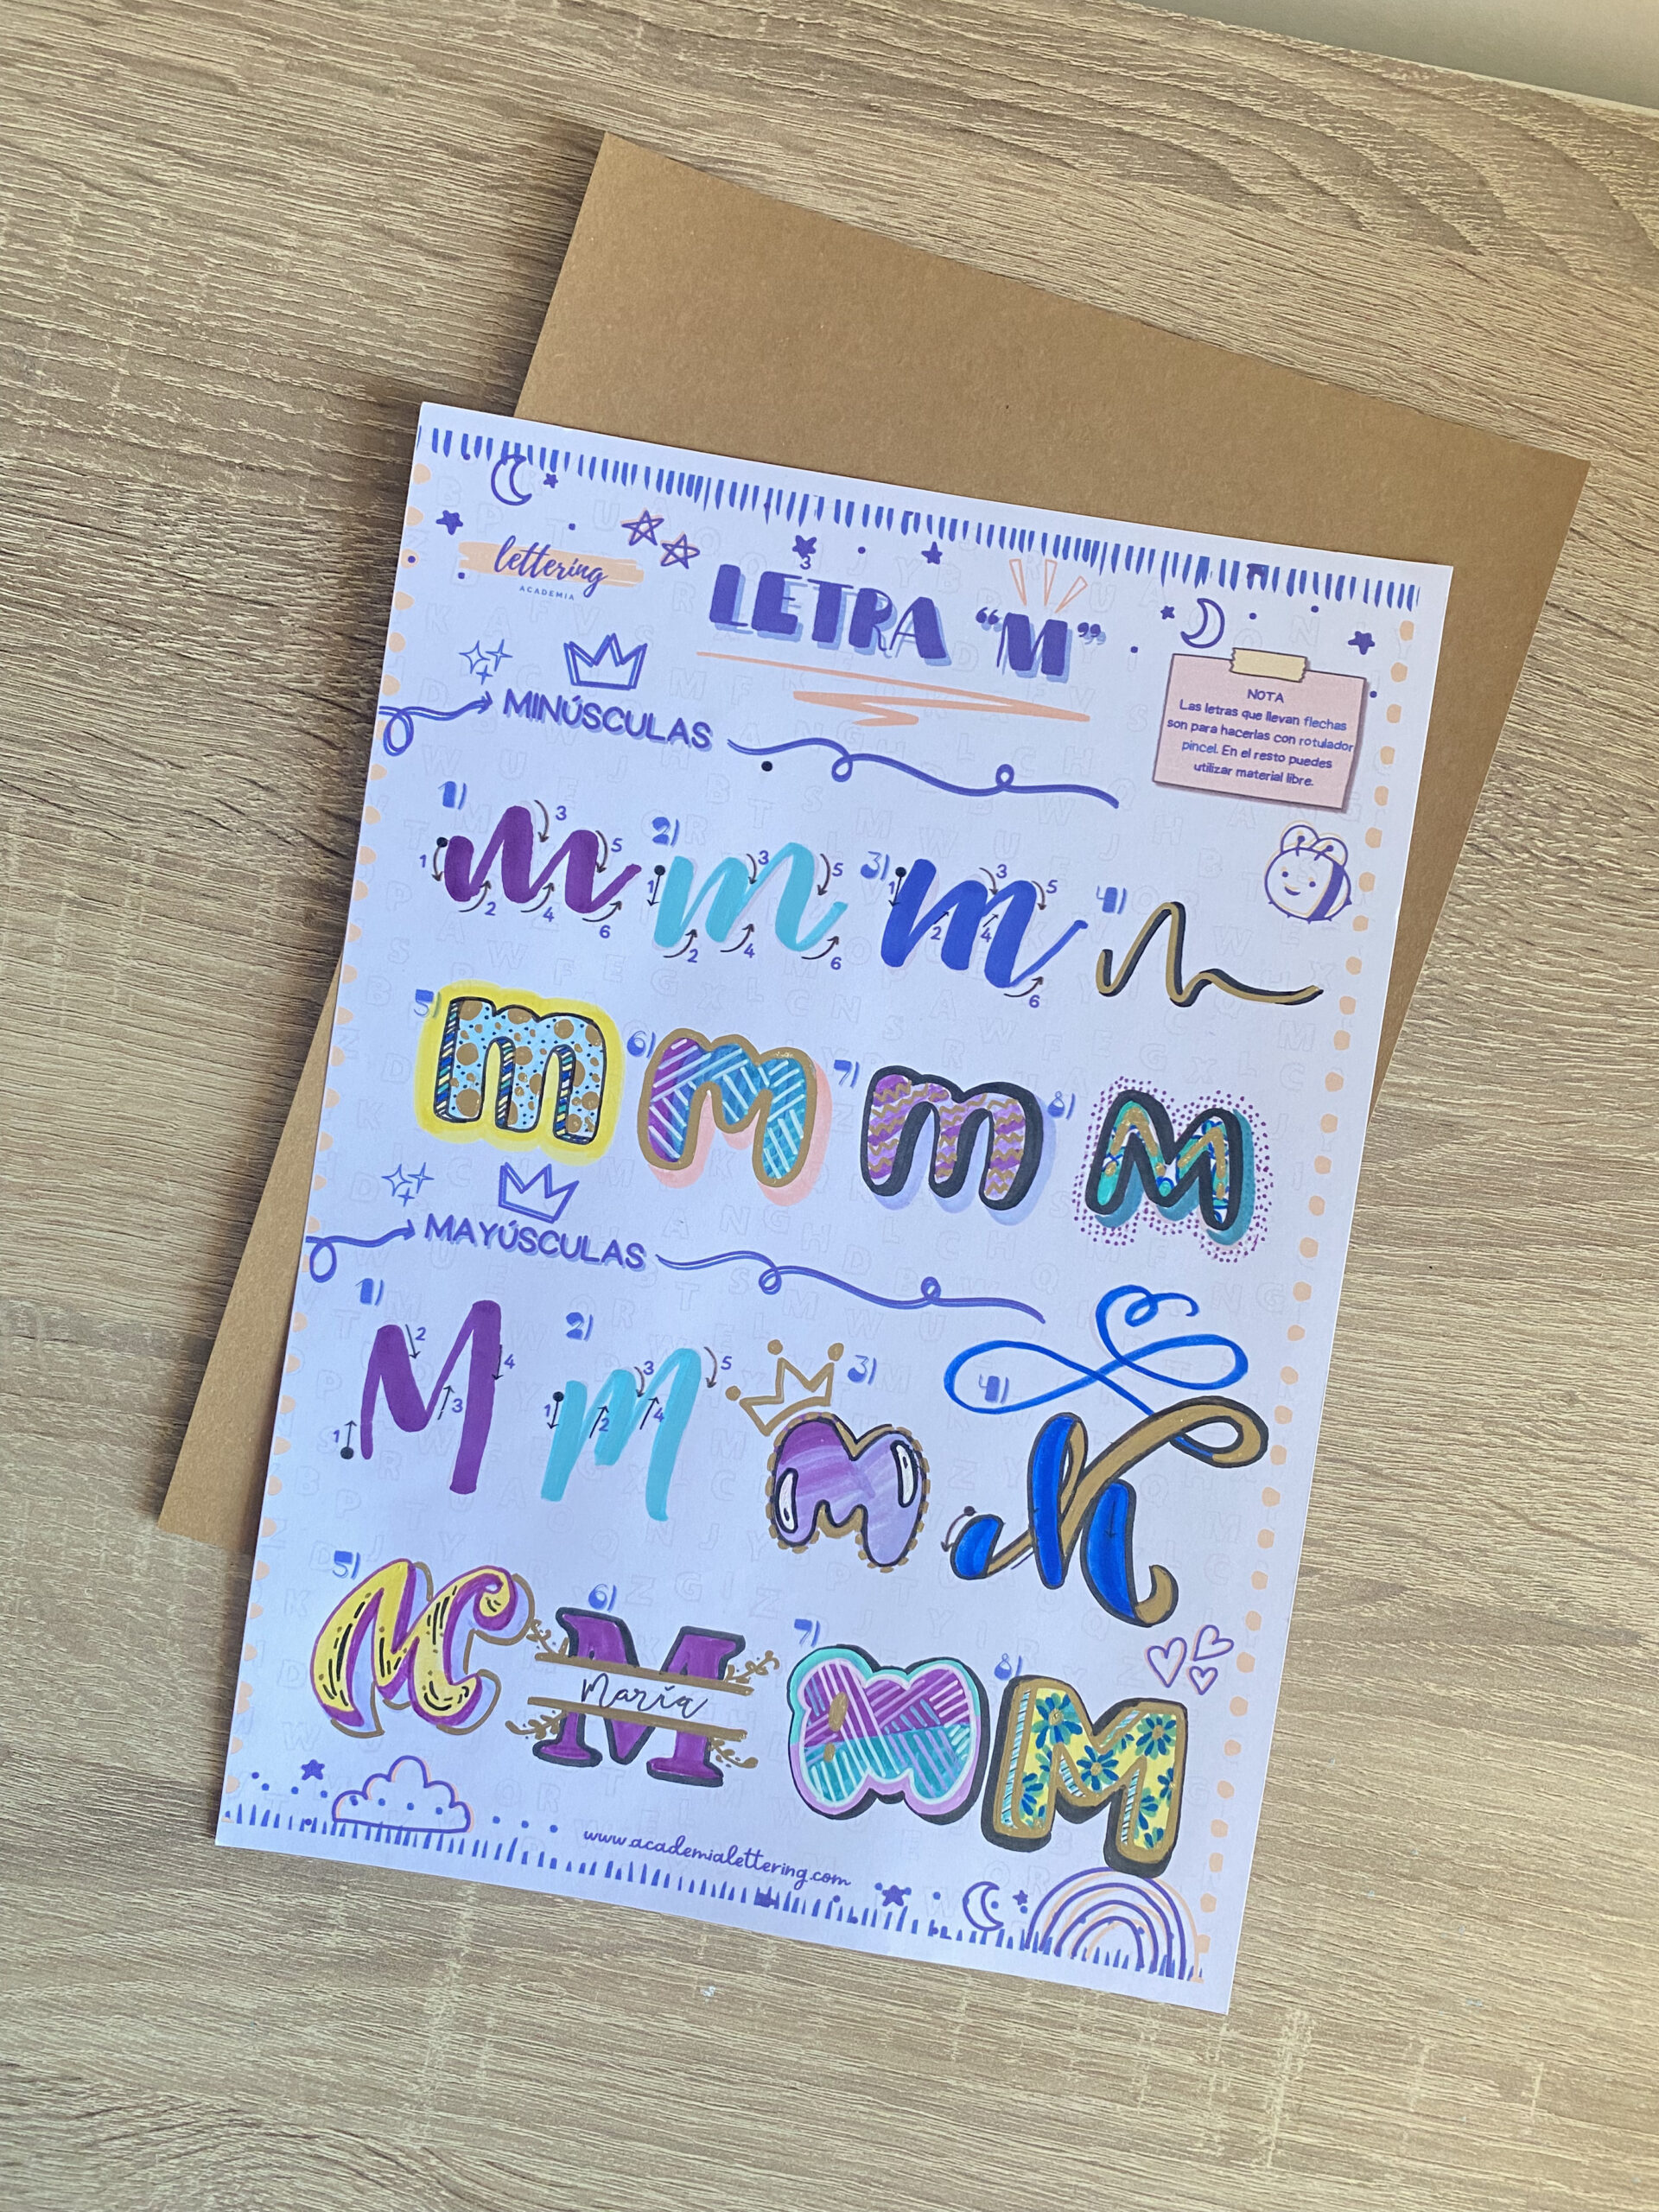 lettering
ACADEMIA
3
LETRA “M”
NOTA
Las letras que llevan flechas
son para hacerlas con rotulador
pincel. En el resto puedes
utilizar material libre.
MINÚSCULAS
1) m 1 2 3 4 5 6
2) m 1 2 3 4 5 6
3) m 1 2 3 4 5 6
4) m
5) m
6) m
7) m
8) M
MAYÚSCULAS
1) M 1 2 3 4
2) M 1 2 3 4 5
3) M
4) M
5) M
6) M María
7) M
8) M
www.academialettering.com